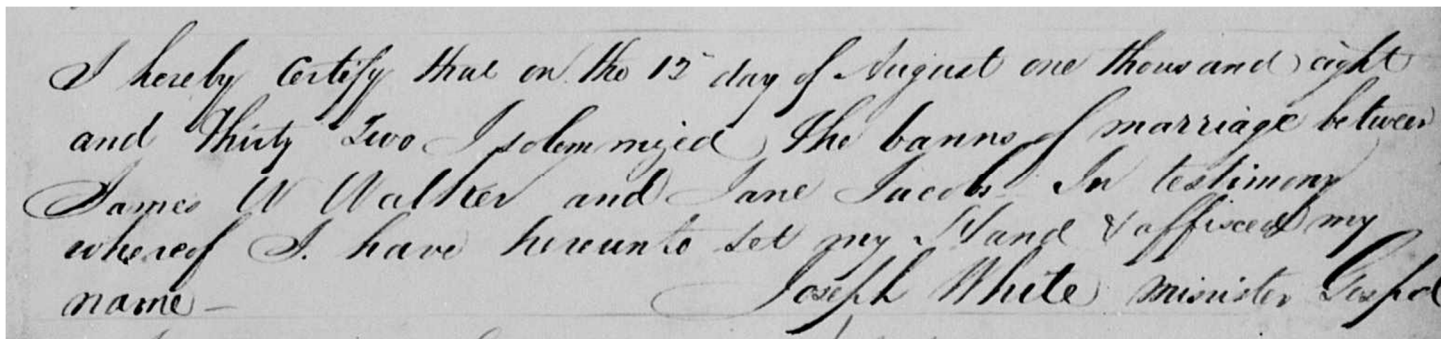 I hereby Certify that on the 12 day of August one thousand eight
and Thirty Two I solemnized the banns of marriage between
James W Walker and Jane Jacobs In testimony
whereof I have hereunto set my Hand & affixed my
name - Joseph White minister Gospel